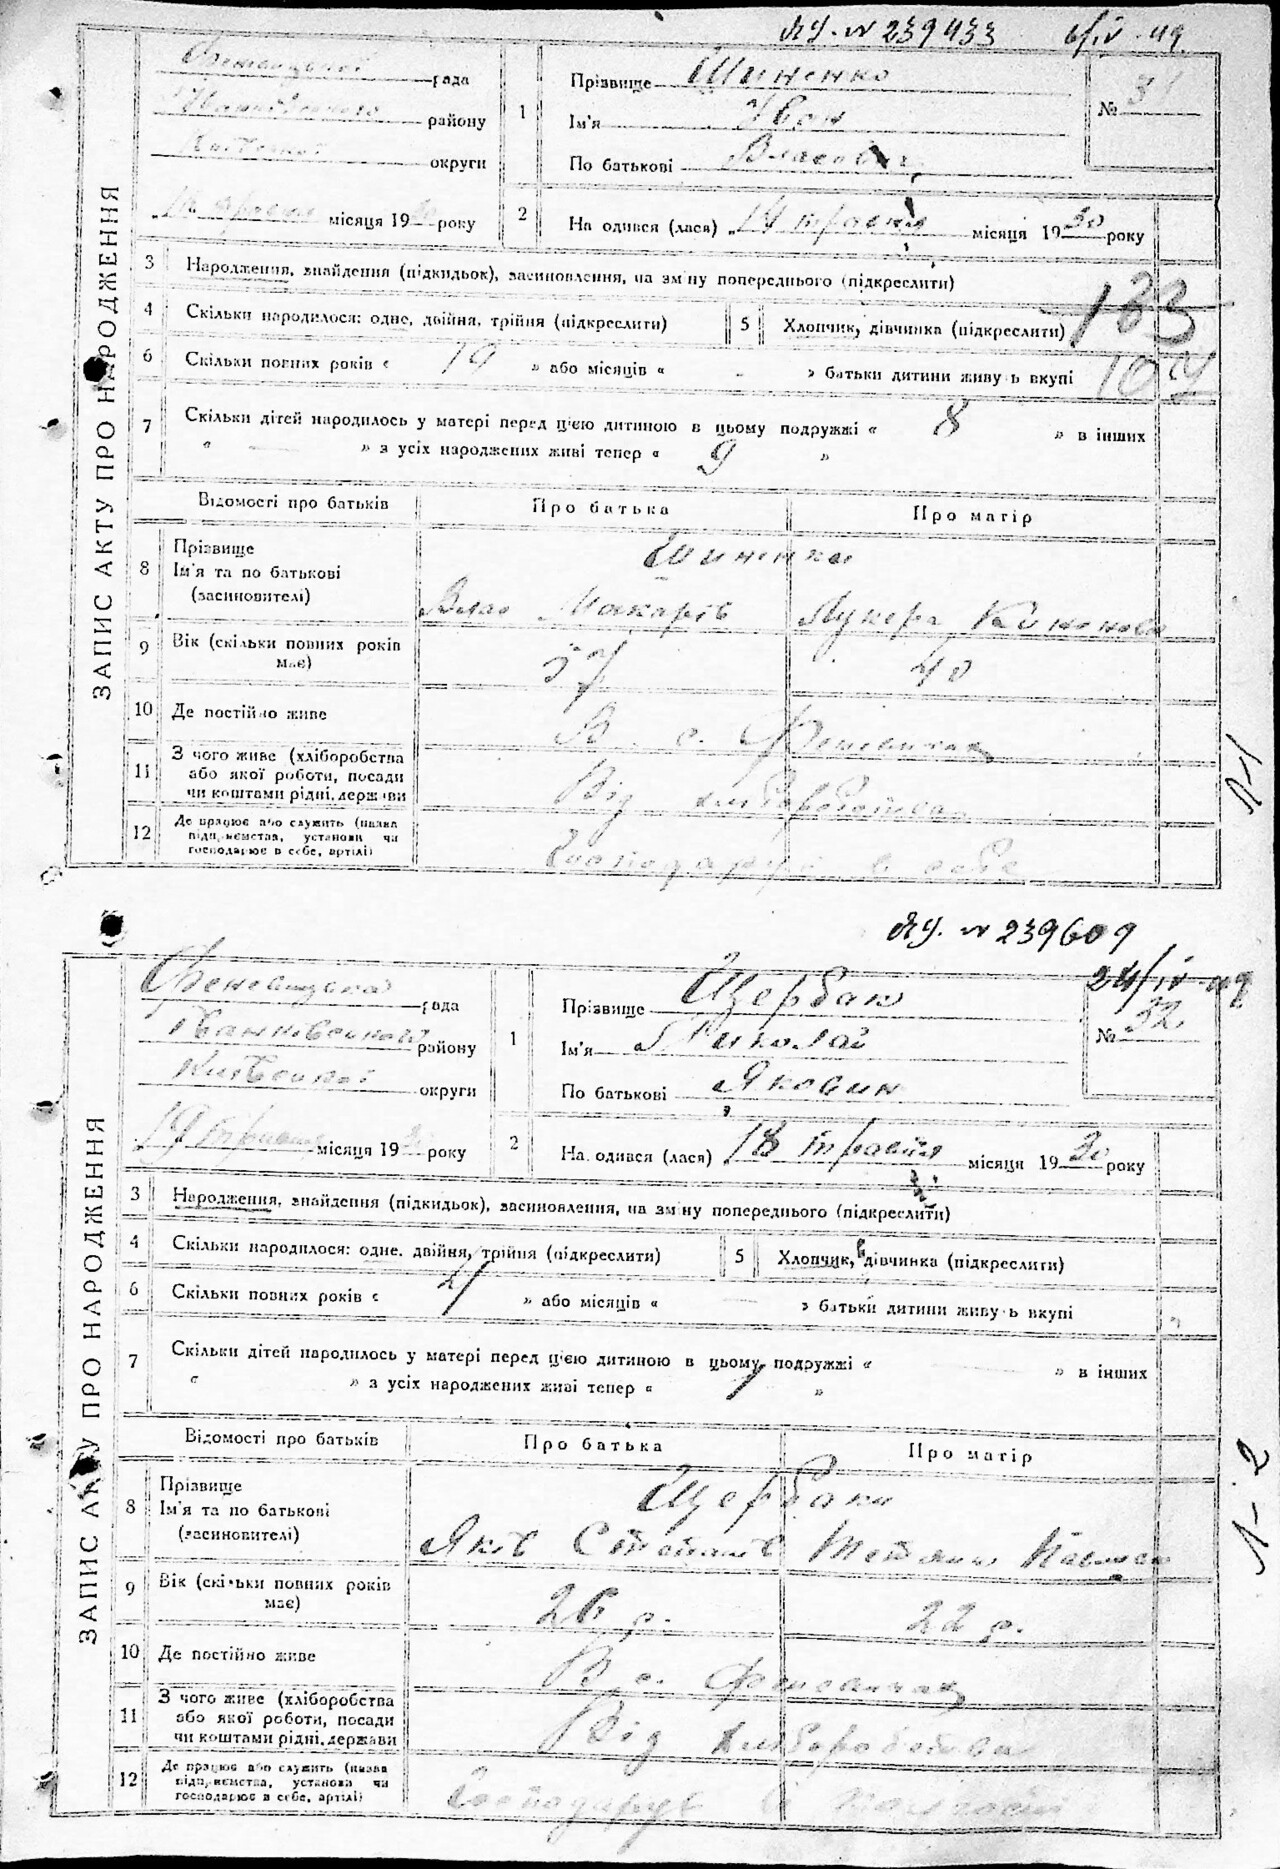 ЯУ. № 239433 6/IV-49
рада
району
округи
місяця 19 року
ЗАПИС АКТУ ПРО НАРОДЖЕННЯ
1
Прізвище Шиненко
Ім'я Іван
По батькові Власович
№ 31
2
На одився (лася) 14 травня місяця 1930 року
3 Народження, знайдення (підкидьок), засиновлення, на зм ну попереднього (підкреслити)
4 Скільки народилося: одне, двійня, трійня (підкреслити)
5 Хлопчик, дівчинка (підкреслити)
183
104
6 Скільки повних років « 19 » або місяців « - » батьки дитини живу ь вкупі
7 Скільки дітей народилось у матері перед цією дитиною в цьому подружжі « 8 » в інших
« — » з усіх народжених живі тепер « 9 »
Відомості про батьків Про батька Про матір
8 Прізвище
Ім'я та по батькові
(засиновителі)
Шиненки
Влас Макарів Лукера Кононова
9 Вік (скільки повних років має) 37 40
10 Де постійно живе В с. Феневичах
11 З чого живе (хліборобства або якої роботи, посади чи коштами рідні, держави Від хліборобства
12 Де працює або служить (назва підприємства, установи чи господарює в себе, артілі) Господарує в себе
Л-1
ЯУ. № 239609
24/IV-49
Феневицька рада
району
Київської округи
19 травня місяця 19 року
ЗАПИС АКТУ ПРО НАРОДЖЕННЯ
1
Прізвище Щербак
Ім'я Миколай
По батькові Якович
№ 32
2
На одився (лася) 18 травня місяця 1930 року
3 Народження, знайдення (підкидьок), засиновлення, на зм ну попереднього (підкреслити)
4 Скільки народилося: одне, двійня, трійня (підкреслити)
5 Хлопчик, дівчинка (підкреслити)
6 Скільки повних років « » або місяців « — » батьки дитини живу ь вкупі
7 Скільки дітей народилось у матері перед цією дитиною в цьому подружжі « — » в інших
« » з усіх народжених живі тепер « 1 »
Відомості про батьків Про батька Про матір
8 Прізвище
Ім'я та по батькові
(засиновителі)
Щербаки
Яків Степанів Тетяна
9 Вік (скільки повних років має) 26 р. 22 р.
10 Де постійно живе В с. Феневичах
11 З чого живе (хліборобства або якої роботи, посади чи коштами рідні, держави Від хліборобства
12 Де працює або служить (назва підприємства, установи чи господарює в себе, артілі) Господарує в
Л-2